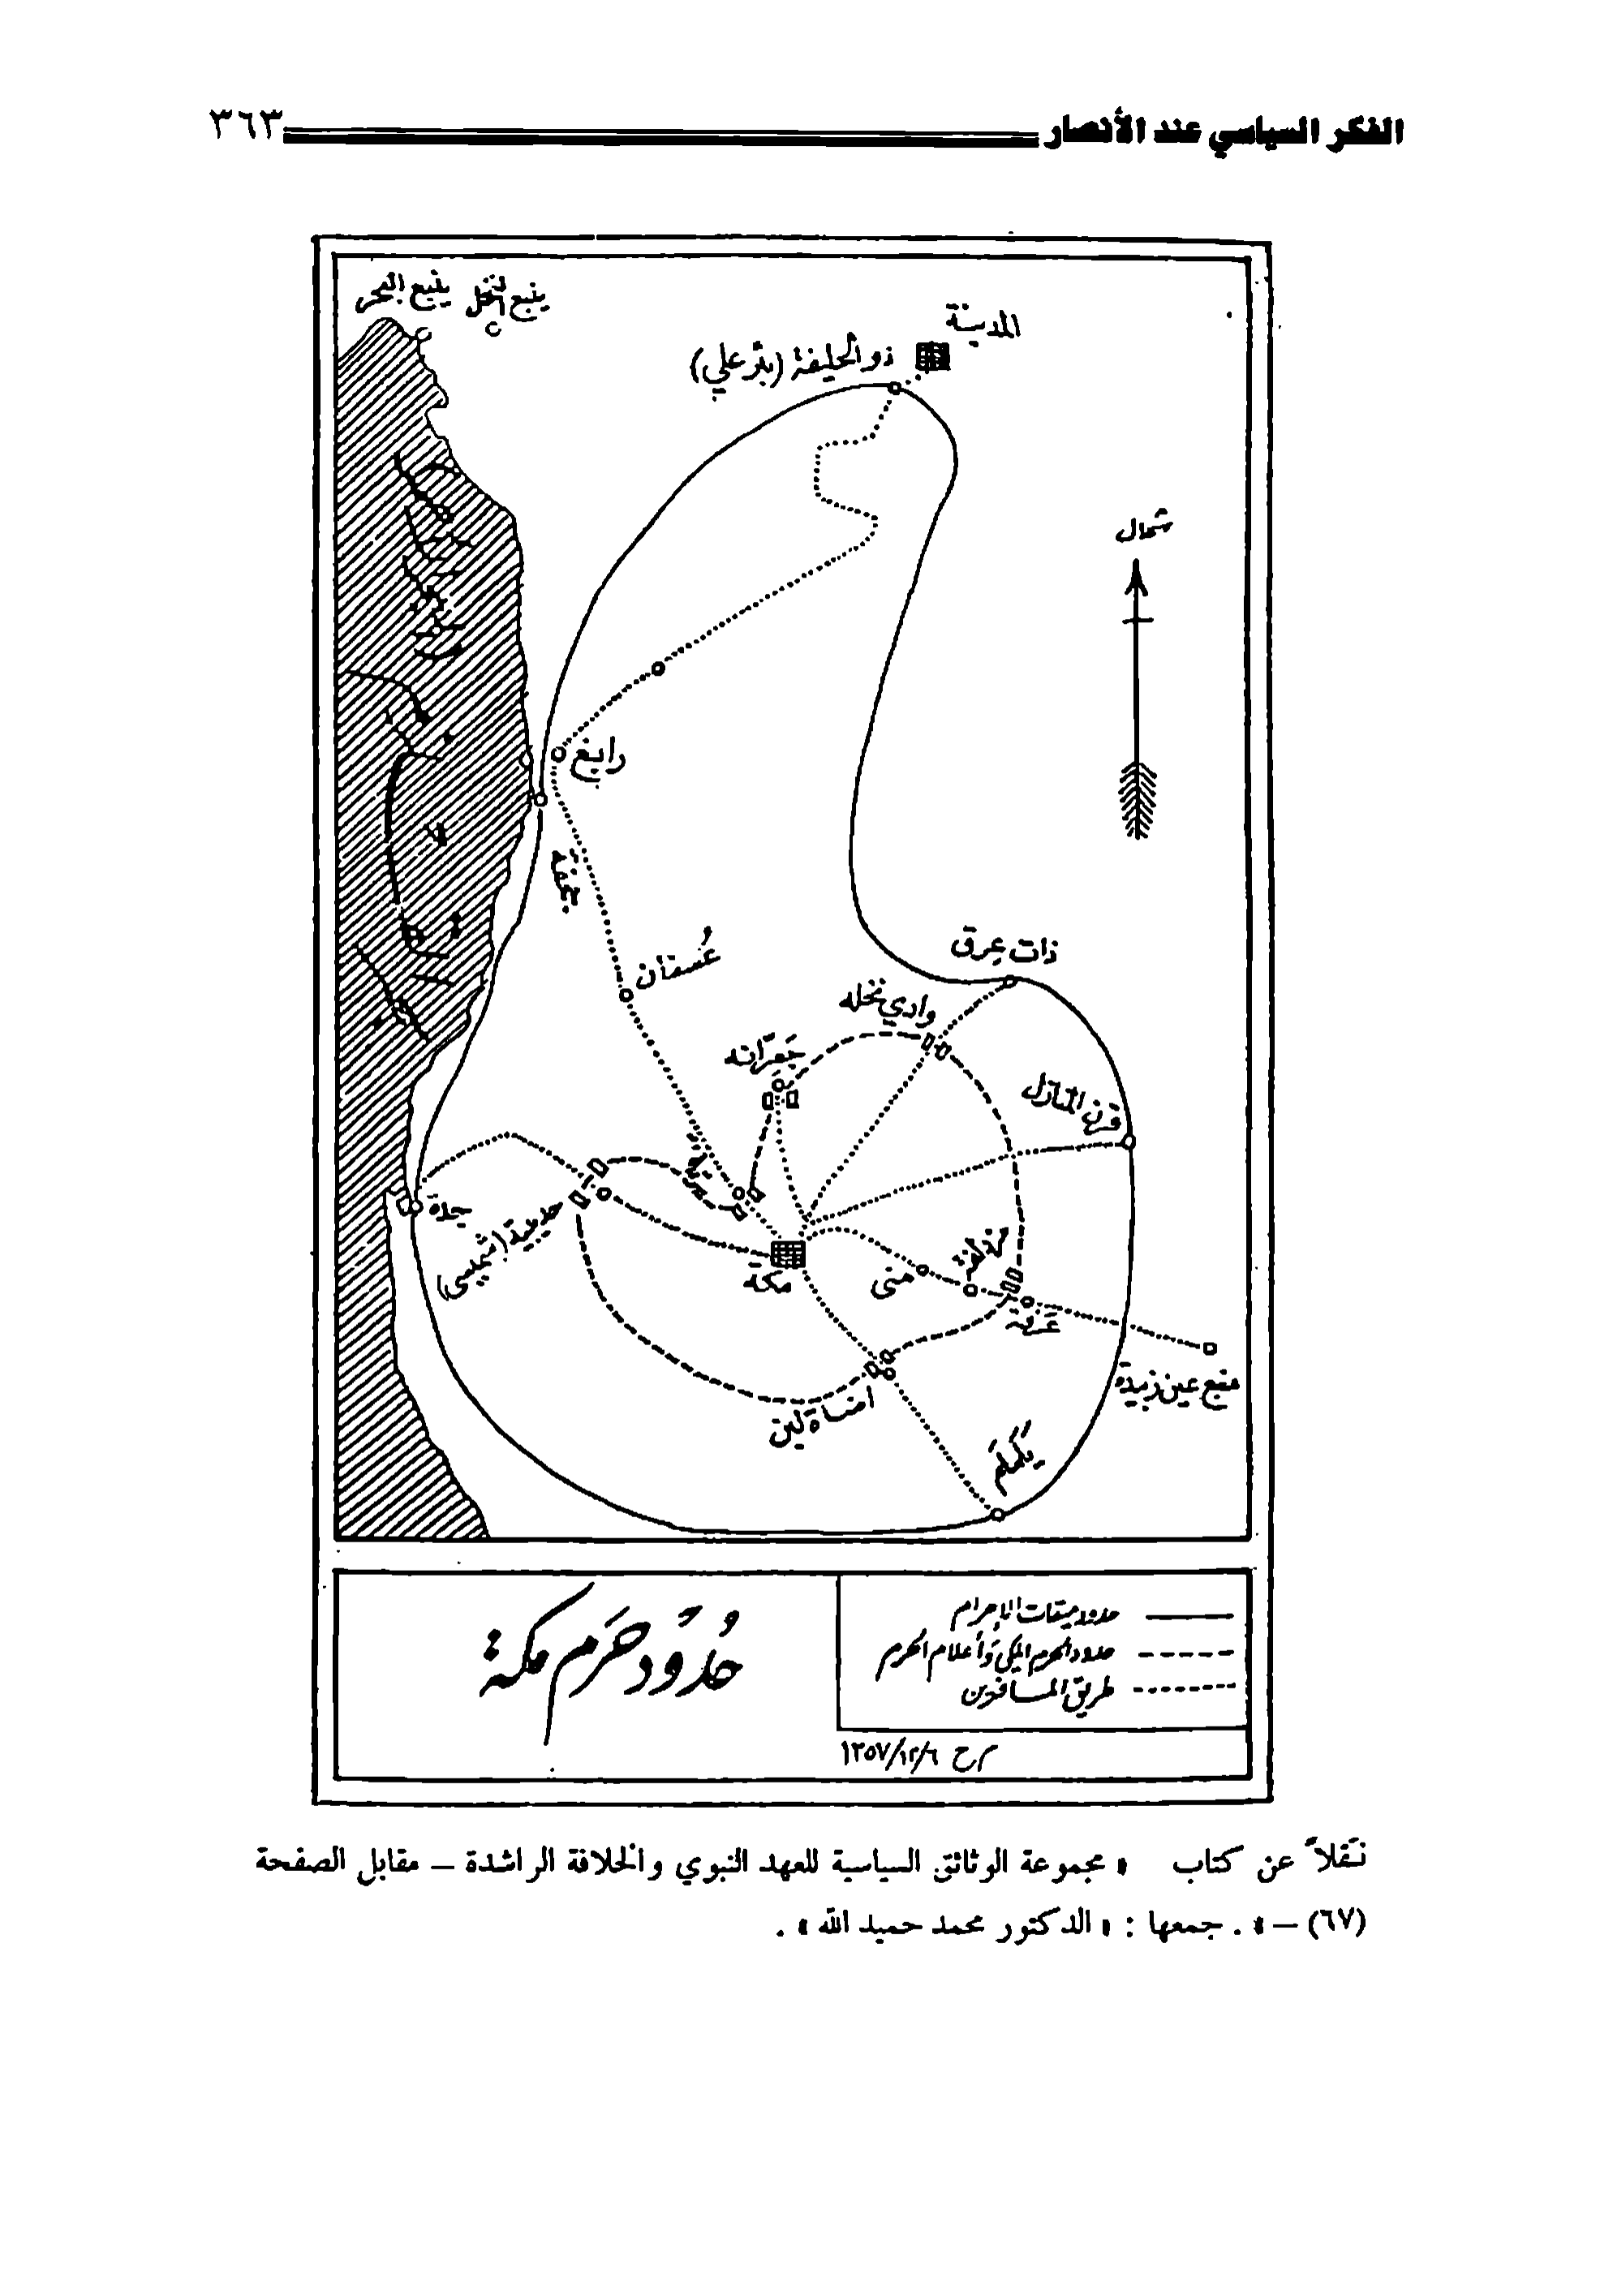 الفكر السياسي عند الأنصار ٣٦٣
ينبع البحر
ينبع النخل
المدينة
ذو الحليفة (بئر علي)
شمال
رابغ
جحفة
عُسفان
ذات عِرق
وادي نخله
جِعرّانه
قرن المنازل
جدة
حديبية (شميسي)
مكة
منى
مزدلفة
عَرفة
منبع عين زبيدة
اضاة لبن
يَلَملَم
حدود ميقات الإحرام
حدود الحرم المكي وأعلام الحرم
طريق المسافرين
حُدُود حَرَم مكة
م ح ١٣٥٧/١٢/٦
نَقلاً عن كتاب « مجموعة الوثائق السياسية للعهد النبوي والخلافة الراشدة – مقابل الصفحة
(٦٧) – » . جمعها : « الدكتور محمد حميد الله » .